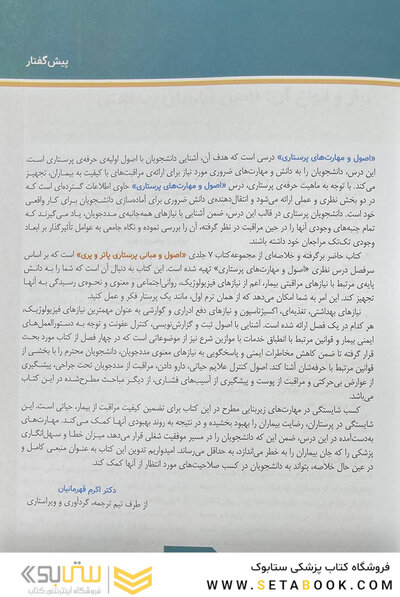 پیش‌گفتار
«اصول و مهارت‌های پرستاری» درسی است که هدف آن، آشنایی دانشجویان با اصول اولیه‌ی حرفه‌ی پرستاری است.
این درس، دانشجویان را به دانش و مهارت‌های ضروری مورد نیاز برای ارائه‌ی مراقبت‌های با کیفیت به بیماران، تجهیز
می‌کند. با توجه به ماهیت حرفه‌ی پرستاری، درس «اصول و مهارت‌های پرستاری» حاوی اطلاعات گسترده‌ای است که
در دو بخش نظری و عملی ارائه می‌شود و انتقال‌دهنده‌ی دانش ضروری برای آماده‌سازی دانشجویان برای کار واقعی
خود است. دانشجویان پرستاری در قالب این درس، ضمن آشنایی با نیازهای همه‌جانبه‌ی مددجویان، یاد می‌گیرند که
تمام جنبه‌های وجودی آنها را در حین مراقبت در نظر گرفته، آن را بررسی نموده و نگاه جامعی به عوامل تأثیرگذار بر ابعاد
وجودی تک‌تک مراجعان خود داشته باشند.
کتاب حاضر برگرفته و خلاصه‌ای از مجموعه‌کتاب ۷ جلدی «اصول و مبانی پرستاری پاتر و پری» است که بر اساس
سرفصل درس نظری «اصول و مهارت‌های پرستاری» تهیه شده است. این کتاب به دنبال آن است که شما را به دانش
پایه‌ی مرتبط با نیازهای مراقبتی بیمار، اعم از نیازهای فیزیولوژیک، روانی‌اجتماعی و معنوی و نحوه‌ی رسیدگی به آنها
تجهیز کند. این امر به شما امکان می‌دهد که از همان ترم اول، مانند یک پرستار فکر و عمل کنید.
نیازهای بهداشتی، تغذیه‌ای، اکسیژناسیون و نیازهای دفع ادراری و گوارشی به عنوان مهمترین نیازهای فیزیولوژیک،
هر کدام در یک فصل ارائه شده است. آشنایی با اصول ثبت و گزارش‌نویسی، کنترل عفونت و توجه به دستورالعمل‌های
ایمنی بیمار و قوانین مرتبط با انطباق خدمات با موازین شرع نیز از موضوعاتی است که در چهار فصل از کتاب مورد بحث
قرار گرفته تا ضمن کاهش مخاطرات ایمنی و پاسخگویی به نیازهای معنوی مددجویان، دانشجویان محترم را با بخشی از
قوانین مرتبط با حرفه‌شان آشنا کند. اصول کنترل علایم حیاتی، دارو دادن، مراقبت از مددجویان تحت جراحی، پیشگیری
از عوارض بی‌حرکتی و مراقبت از پوست و پیشگیری از آسیب‌های فشاری، از دیگر مباحث مطرح‌شده در این کتاب
می‌باشد.
کسب شایستگی در مهارت‌های زیربنایی مطرح در این کتاب برای تضمین کیفیت مراقبت از بیمار، حیاتی است. این
شایستگی در پرستاران، رضایت بیماران را بهبود بخشیده و در نتیجه به روند بهبودی آنها کمک می‌کند. مهارت‌های
به‌دست‌آمده در این درس، ضمن این که دانشجویان را در مسیر موفقیت شغلی قرار می‌دهد، میزان خطا و سهل‌انگاری
پزشکی را که جان بیماران را به خطر می‌اندازد، به حداقل می‌رساند. امیدواریم تدوین این کتاب به عنوان منبعی کامل و
در عین حال خلاصه، بتواند به دانشجویان در کسب صلاحیت‌های مورد انتظار از آنها کمک کند.
دکتر اکرم قهرمانیان
از طرف تیم ترجمه، گردآوری و ویراستاری
فروشگاه کتاب پزشکی ستابوک
WWW.SETABOOK.COM
ستابوک
فروشگاه اینترنتی کتاب